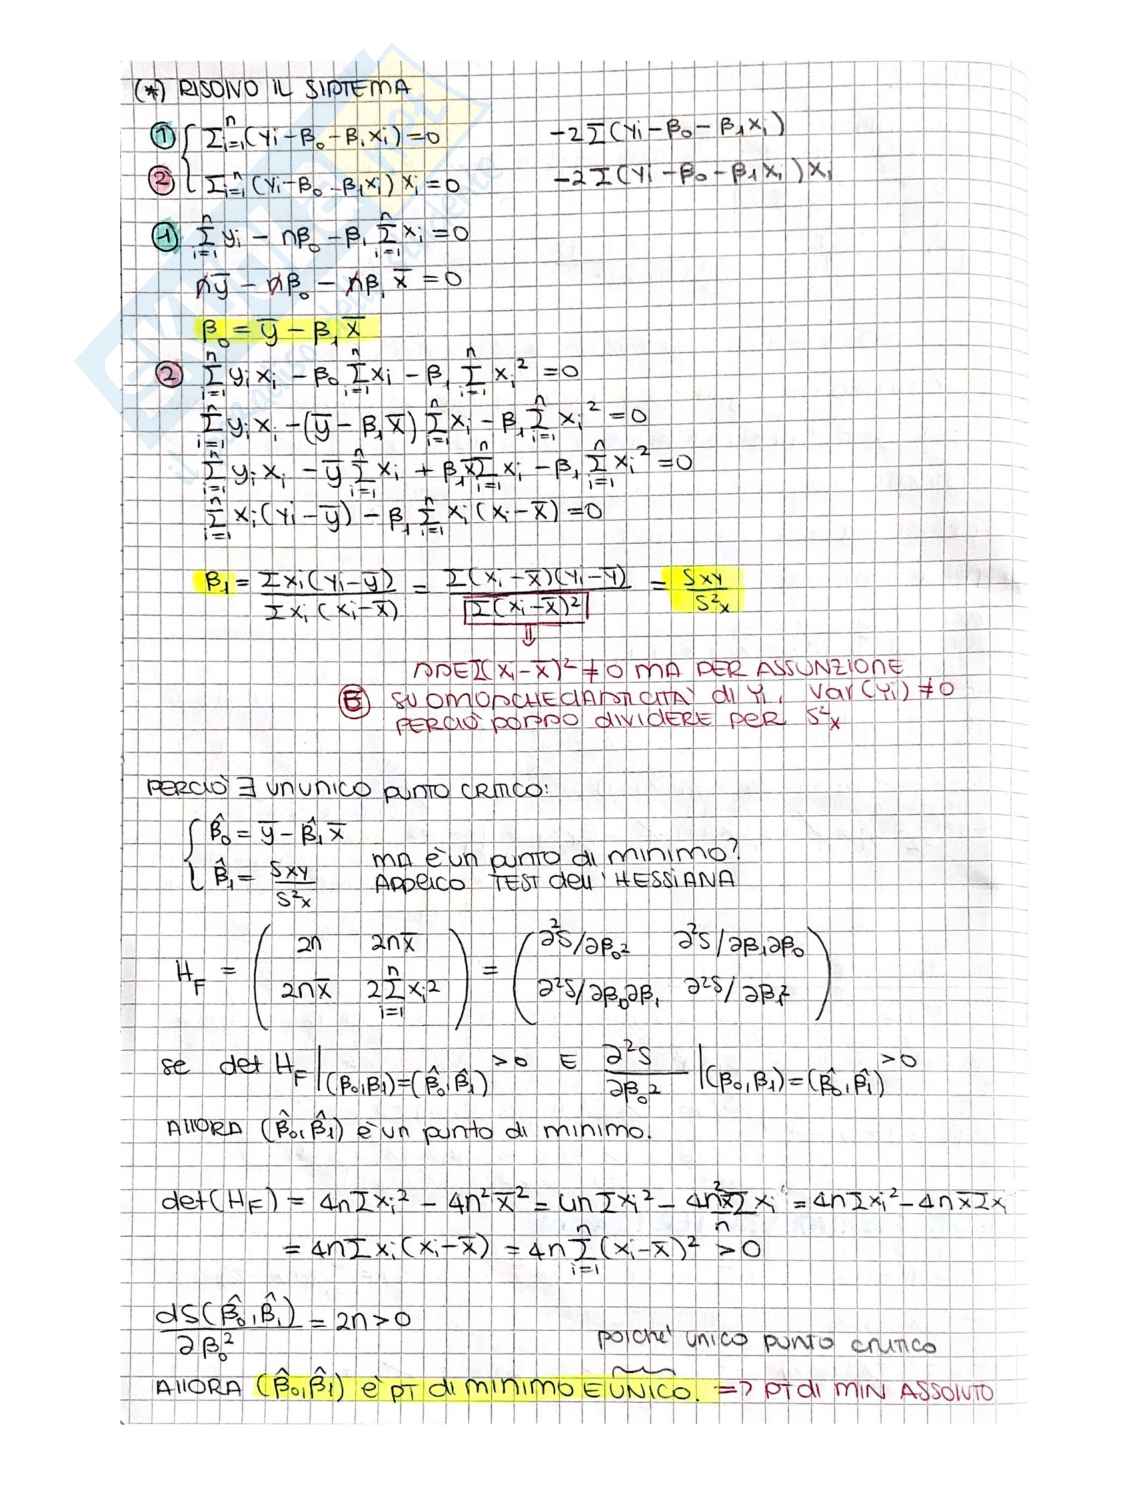 (*) RISOLVO IL SISTEMA
① { Σⁿᵢ₌₁ (yi − β₀ − β₁xi) = 0    −2Σ(yi − β₀ − β₁xi)
② { Σⁿᵢ₌₁ (yi − β₀ − β₁xi) xi = 0    −2Σ(yi − β₀ − β₁xi) xi
① Σⁿᵢ₌₁ yi − nβ₀ − β₁ Σⁿᵢ₌₁ xi = 0
nȳ − nβ₀ − nβ₁ x̄ = 0
β₀ = ȳ − β₁x̄
② Σⁿᵢ₌₁ yi xi − β₀ Σⁿᵢ₌₁ xi − β₁ Σⁿᵢ₌₁ xi² = 0
Σⁿᵢ₌₁ yi xi − (ȳ − β₁x̄) Σⁿᵢ₌₁ xi − β₁ Σⁿᵢ₌₁ xi² = 0
Σⁿᵢ₌₁ yi xi − ȳ Σⁿᵢ₌₁ xi + β₁x̄ Σⁿᵢ₌₁ xi − β₁ Σⁿᵢ₌₁ xi² = 0
Σⁿᵢ₌₁ xi (yi − ȳ) − β₁ Σⁿᵢ₌₁ xi (xi − x̄) = 0
β₁ = Σxi(yi − ȳ) / Σxi(xi − x̄) = Σ(xi − x̄)(yi − ȳ) / Σ(xi − x̄)² = Sxy / S²x
⇓
SSE Σ(xi − x̄)² ≠ 0 MA PER ASSUNZIONE
SU OMOSCHEDASTICITÀ di Yi, Var(Yi) ≠ 0
PERCIÒ POSSO DIVIDERE PER S²x
PERCIÒ ∃ UN UNICO PUNTO CRITICO:
{ β̂₀ = ȳ − β̂₁x̄
{ β̂₁ = Sxy / S²x    MA È UN PUNTO di MINIMO?
APPLICO TEST dell'HESSIANA
H_F = ( 2n  2nx̄ ; 2nx̄  2Σⁿᵢ₌₁ xi² ) = ( ∂²S/∂β₀²  ∂²S/∂β₁∂β₀ ; ∂²S/∂β₀∂β₁  ∂²S/∂β₁² )
se det H_F |(β₀,β₁)=(β̂₀,β̂₁) > 0 E ∂²S/∂β₀² |(β₀,β₁)=(β̂₀,β̂₁) > 0
ALLORA (β̂₀,β̂₁) è un punto di minimo.
det(H_F) = 4nΣxi² − 4n²x̄² = 4nΣxi² − 4n²x̄Σxi / n = 4nΣxi² − 4nx̄Σxi
= 4nΣxi(xi − x̄) = 4n Σⁿᵢ₌₁ (xi − x̄)² > 0
dS(β̂₀,β̂₁) / ∂β₀² = 2n > 0
poichè unico punto critico
ALLORA (β̂₀,β̂₁) è PT di MINIMO E UNICO. => PT di MIN ASSOLUTO